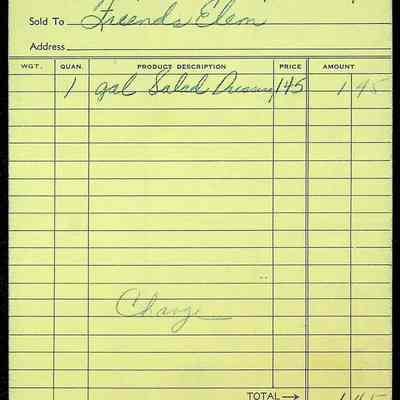 Sold To Friends Elem
Address
WGT. QUAN. PRODUCT DESCRIPTION PRICE AMOUNT
1 gal Salad Dressing 1 45 1 45
Charge
TOTAL → 1 45